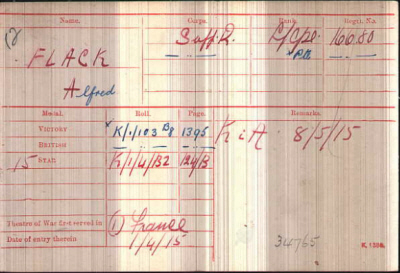 Name. Corps. Rank. Regtl. No.
FLACK Suff. R. L/Cpl. 16080
" Pte. "
Alfred
Medal. Roll. Page. Remarks.
VICTORY K/1/103 B8 1395 K i A. 8/5/15
BRITISH
15 STAR K/1/4/B2 124/B
Theatre of War first served in (1) France
Date of entry therein 1/4/15
34765
K. 1380.